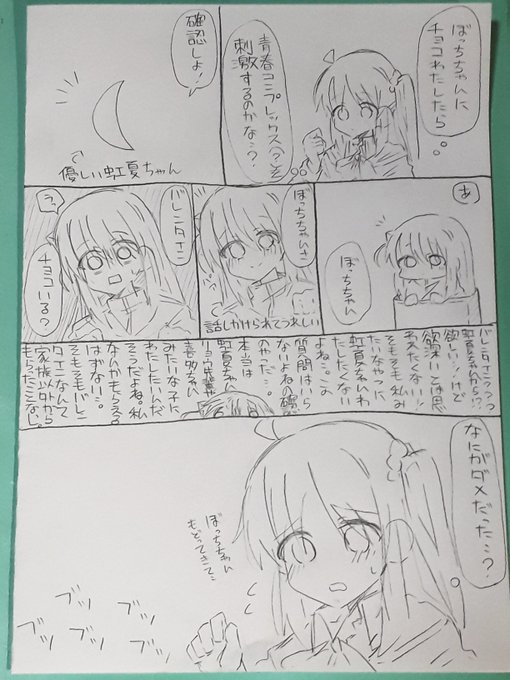 ぼっちちゃんに
チョコわたしたら
青春コンプレックス(?)を
刺激するのかな…?
確認しよ!
優しい虹夏ちゃん
あ
ぼっちちゃん
ぼっちちゃんさ
話しかけられてうれしい
バレンタイン
チョコいる?
っ?
バレンタインっっっ
虹夏ちゃんから!?
欲しい…!けど
欲深いとは思
われたくない…!
そもそも私み
たいなやつに
虹夏ちゃんわ
たしたくない
よね…この
質問はいら
ないよねの確認
のやつだ…。
本当は
虹夏ちゃん
リョウ先輩や
喜多ちゃん
みたいな子に
わたしたいんだ
そうだよね。私
なんかがもらえる
はずない…。
そもそもバレン
タインなんて
家族以外から
もらったことないし
なにがダメだった…?
ぼっちちゃん
もどってきて…
ブツ
ブツ
ブツ
ブツ
ブツ